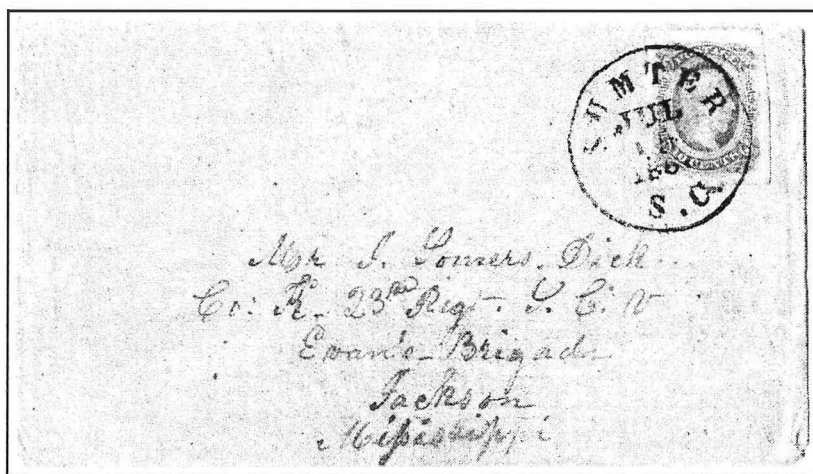 SUMTER
JUL
S.C.
Mr J. Somers Dick
Co: K. 23rd Regt. S. C. V
Evan's Brigade
Jackson
Mississippi